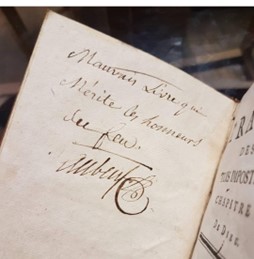 Mauvais Livre qui
Mérite les honneurs
du feu.
TRA
DES
TROIS IMPOST
CHAPITRE
De Dieu.